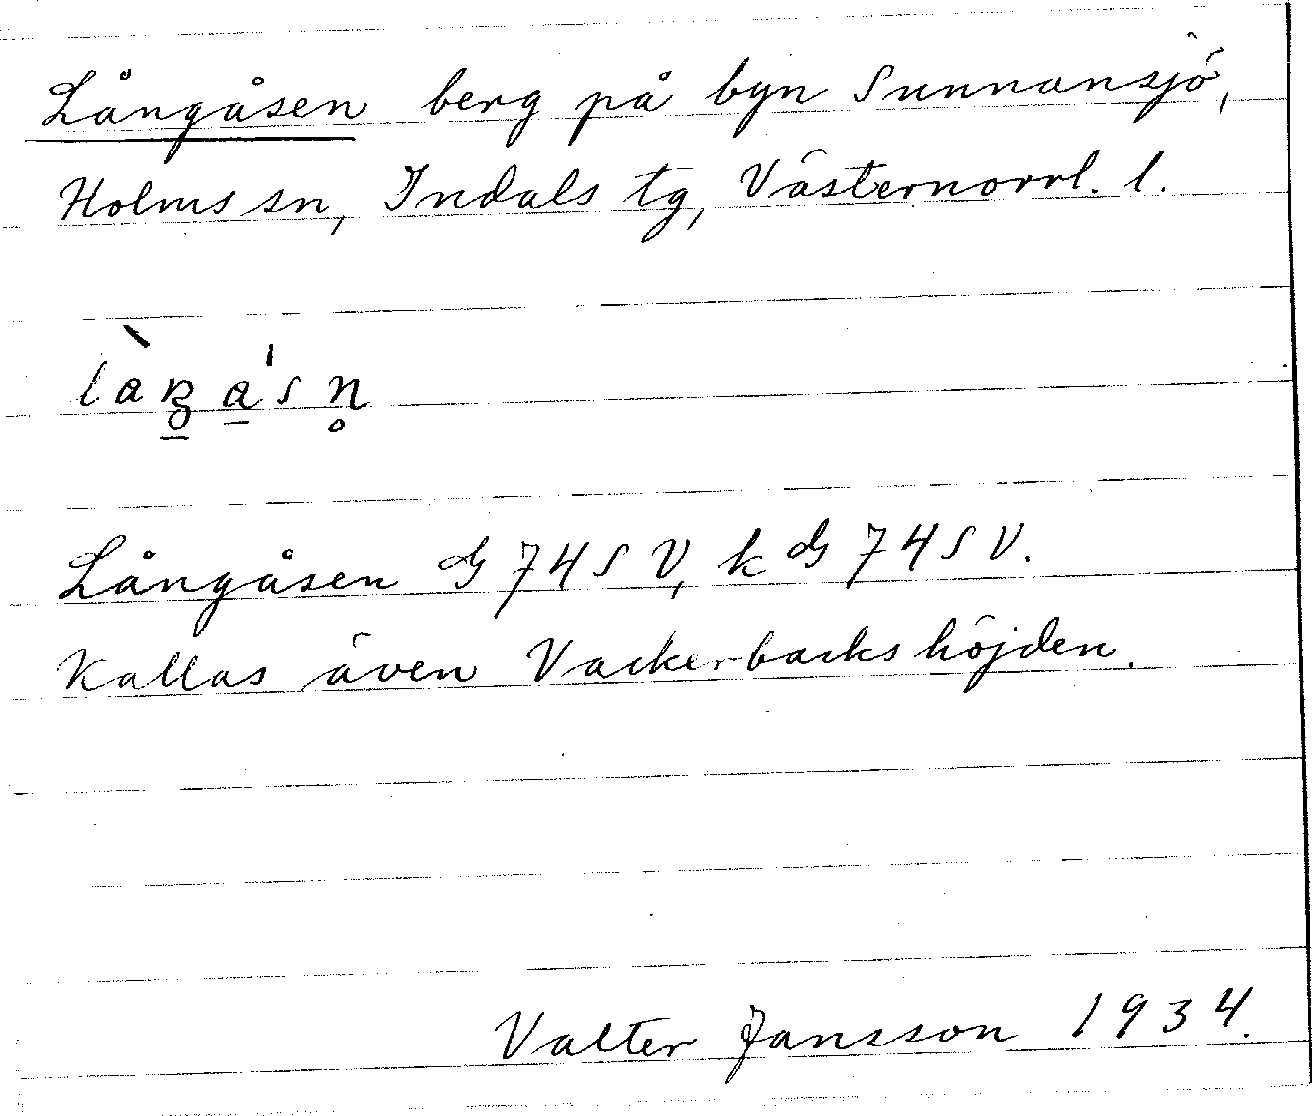 Långåsen berg på byn Sunnansjö,
Holms sn, Indals tg, Västernorrl. l.
Långåsen G 74 SV, k G 74 SV.
Kallas även Vackerbackshöjden.
Valter Jansson 1934.